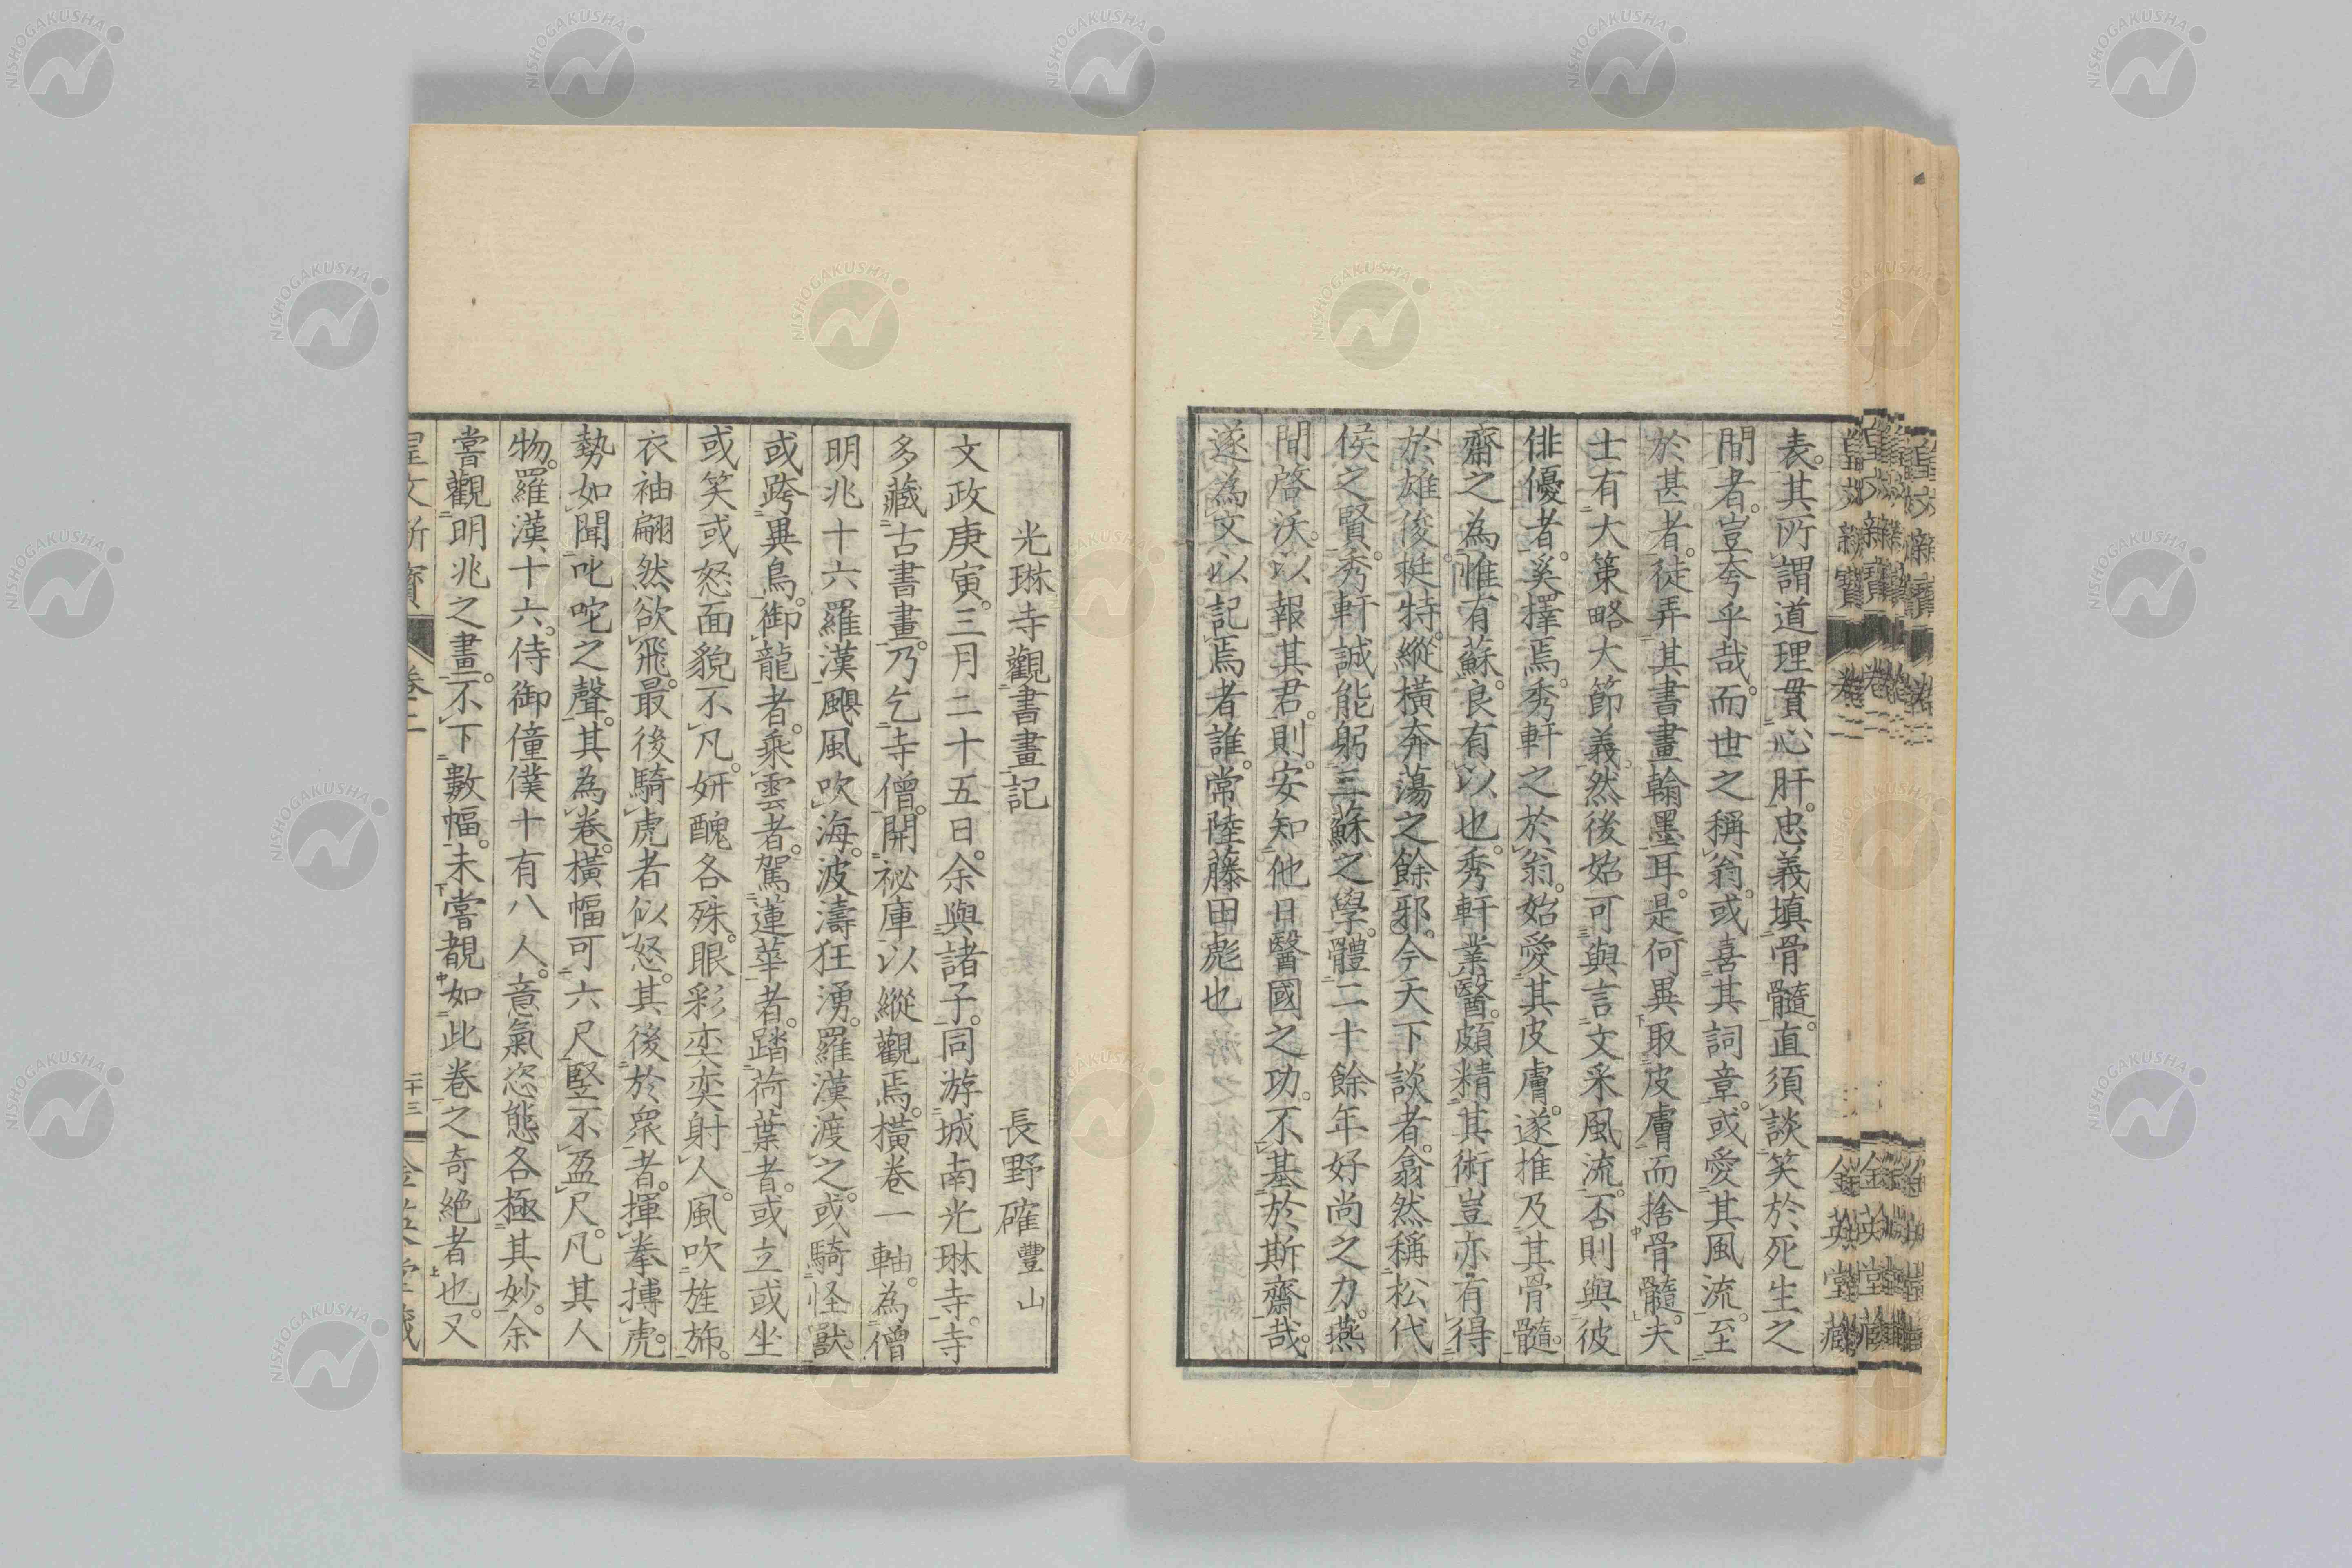 表。其所謂道理貫心肝。忠義填骨髓。直須談笑於死生之
間者。豈夸乎哉。而世之稱翁。或喜其詞章。或愛其風流。至
於甚者。徒弄其書畫翰墨耳。是何異取皮膚而捨骨髓。夫
士有大策略大節義。然後始可與言文采風流。否則與彼
俳優者。奚擇焉。秀軒之於翁。始愛其皮膚。遂推及其骨髓。
齋之為惟有蘇。良有以也。秀軒業醫。頗精其術。豈亦有得
於雄俊挺特。縱橫奔蕩之餘邪。今天下談者。翕然稱松代
侯之賢。秀軒誠能躬三蘇之學。體二十餘年好尚之力。燕
間啓沃。以報其君。則安知他日醫國之功。不基於斯齋哉。
遂為文以記焉者誰。常陸藤田彪也
光琳寺觀書畫記 長野確 豐山
文政庚寅。三月二十五日。余與諸子。同游城南光琳寺。寺
多藏古書畫。乃乞寺僧。開祕庫以縱觀焉。橫卷一軸。為僧
明兆十六羅漢。颶風吹海。波濤狂湧。羅漢渡之。或騎怪獸。
或跨異鳥。御龍者。乘雲者。駕蓮華者。踏荷葉者。或立或坐
或笑或怒。面貌不凡。妍醜各殊。眼彩奕奕射人。風吹旌旆。
衣袖翩然欲飛。最後騎虎者似怒。其後於眾者。揮拳搏虎。
勢如聞叱咤之聲。其為卷。橫幅可六尺。竪不盈尺。凡其人
物。羅漢十六。侍御僮僕十有八人。意氣恣態各極其妙。余
嘗觀明兆之畫。不下數幅。未嘗覩如此卷之奇絶者也。又
皇文新寶 卷二 二十三 金英堂藏